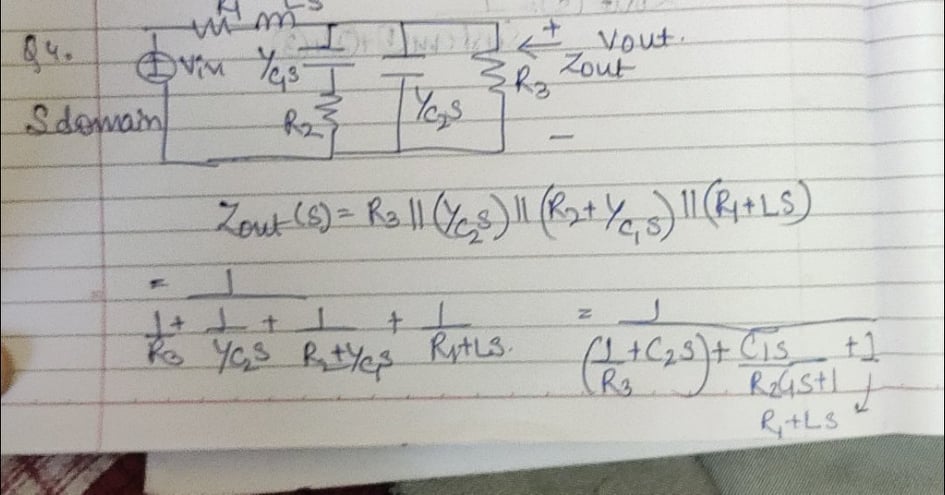 R1 LS
Q4. Vin 1/C1S R2 1/C2S R3 + Vout.
Zout
S domain −
Zout(s) = R3 || (1/C2S) || (R2 + 1/C1S) || (R1 + LS)
= 1 / (1/R3 + 1/(1/C2S) + 1/(R2 + 1/C1S) + 1/(R1 + LS)) = 1 / ((1/R3 + C2S) + C1S/(R2C1S + 1) + 1/(R1 + LS))